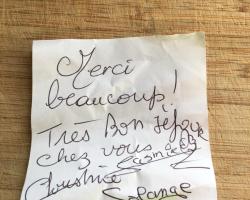 Merci
beaucoup !
Très Bon séjour
chez vous
Solange